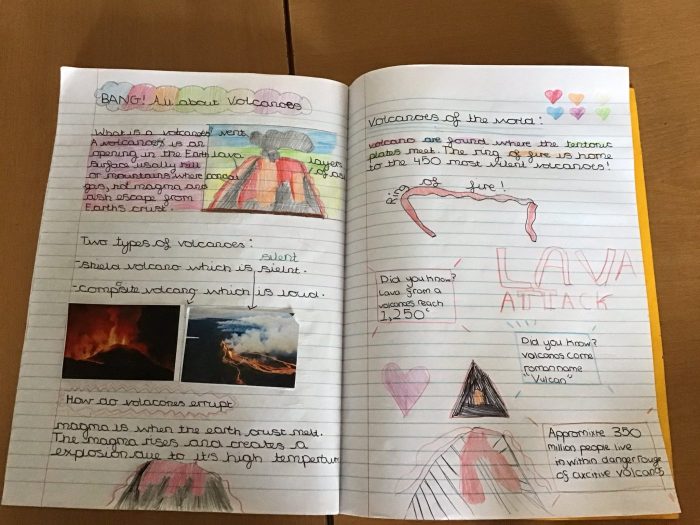 BANG! All about Volcanoes
What is a volcanoes?
A volcanoes is an
opening in the Earth
surface usally hill
or mountains where
gas, hot magma and
ash escape from
Earths crust.
vent
lava
layers
of ash
Two types of volcanoes:
silent
-shield volcano which is sielnt.
-composite volcano which is loud.
How do volacones errupt
magma is when the earth crust melt.
The magma rises and creates a
explosion due to it's high tempertur
Volcanoes of the world:
volcano are found where the tentonic
plates meet. The ring of fire is home
to the 450 most vilent volcanois!
Ring of fire!
LAVA
ATTACK
Did you know?
Lava from a
volcanoes reach
1,250°
Did you know?
volcanos come
roman name
"Vulcan"
Appromixte 350
million people live
in within danger rouge
of avcitive volcanos